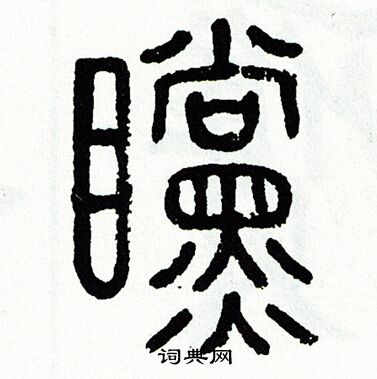 曭
词典网